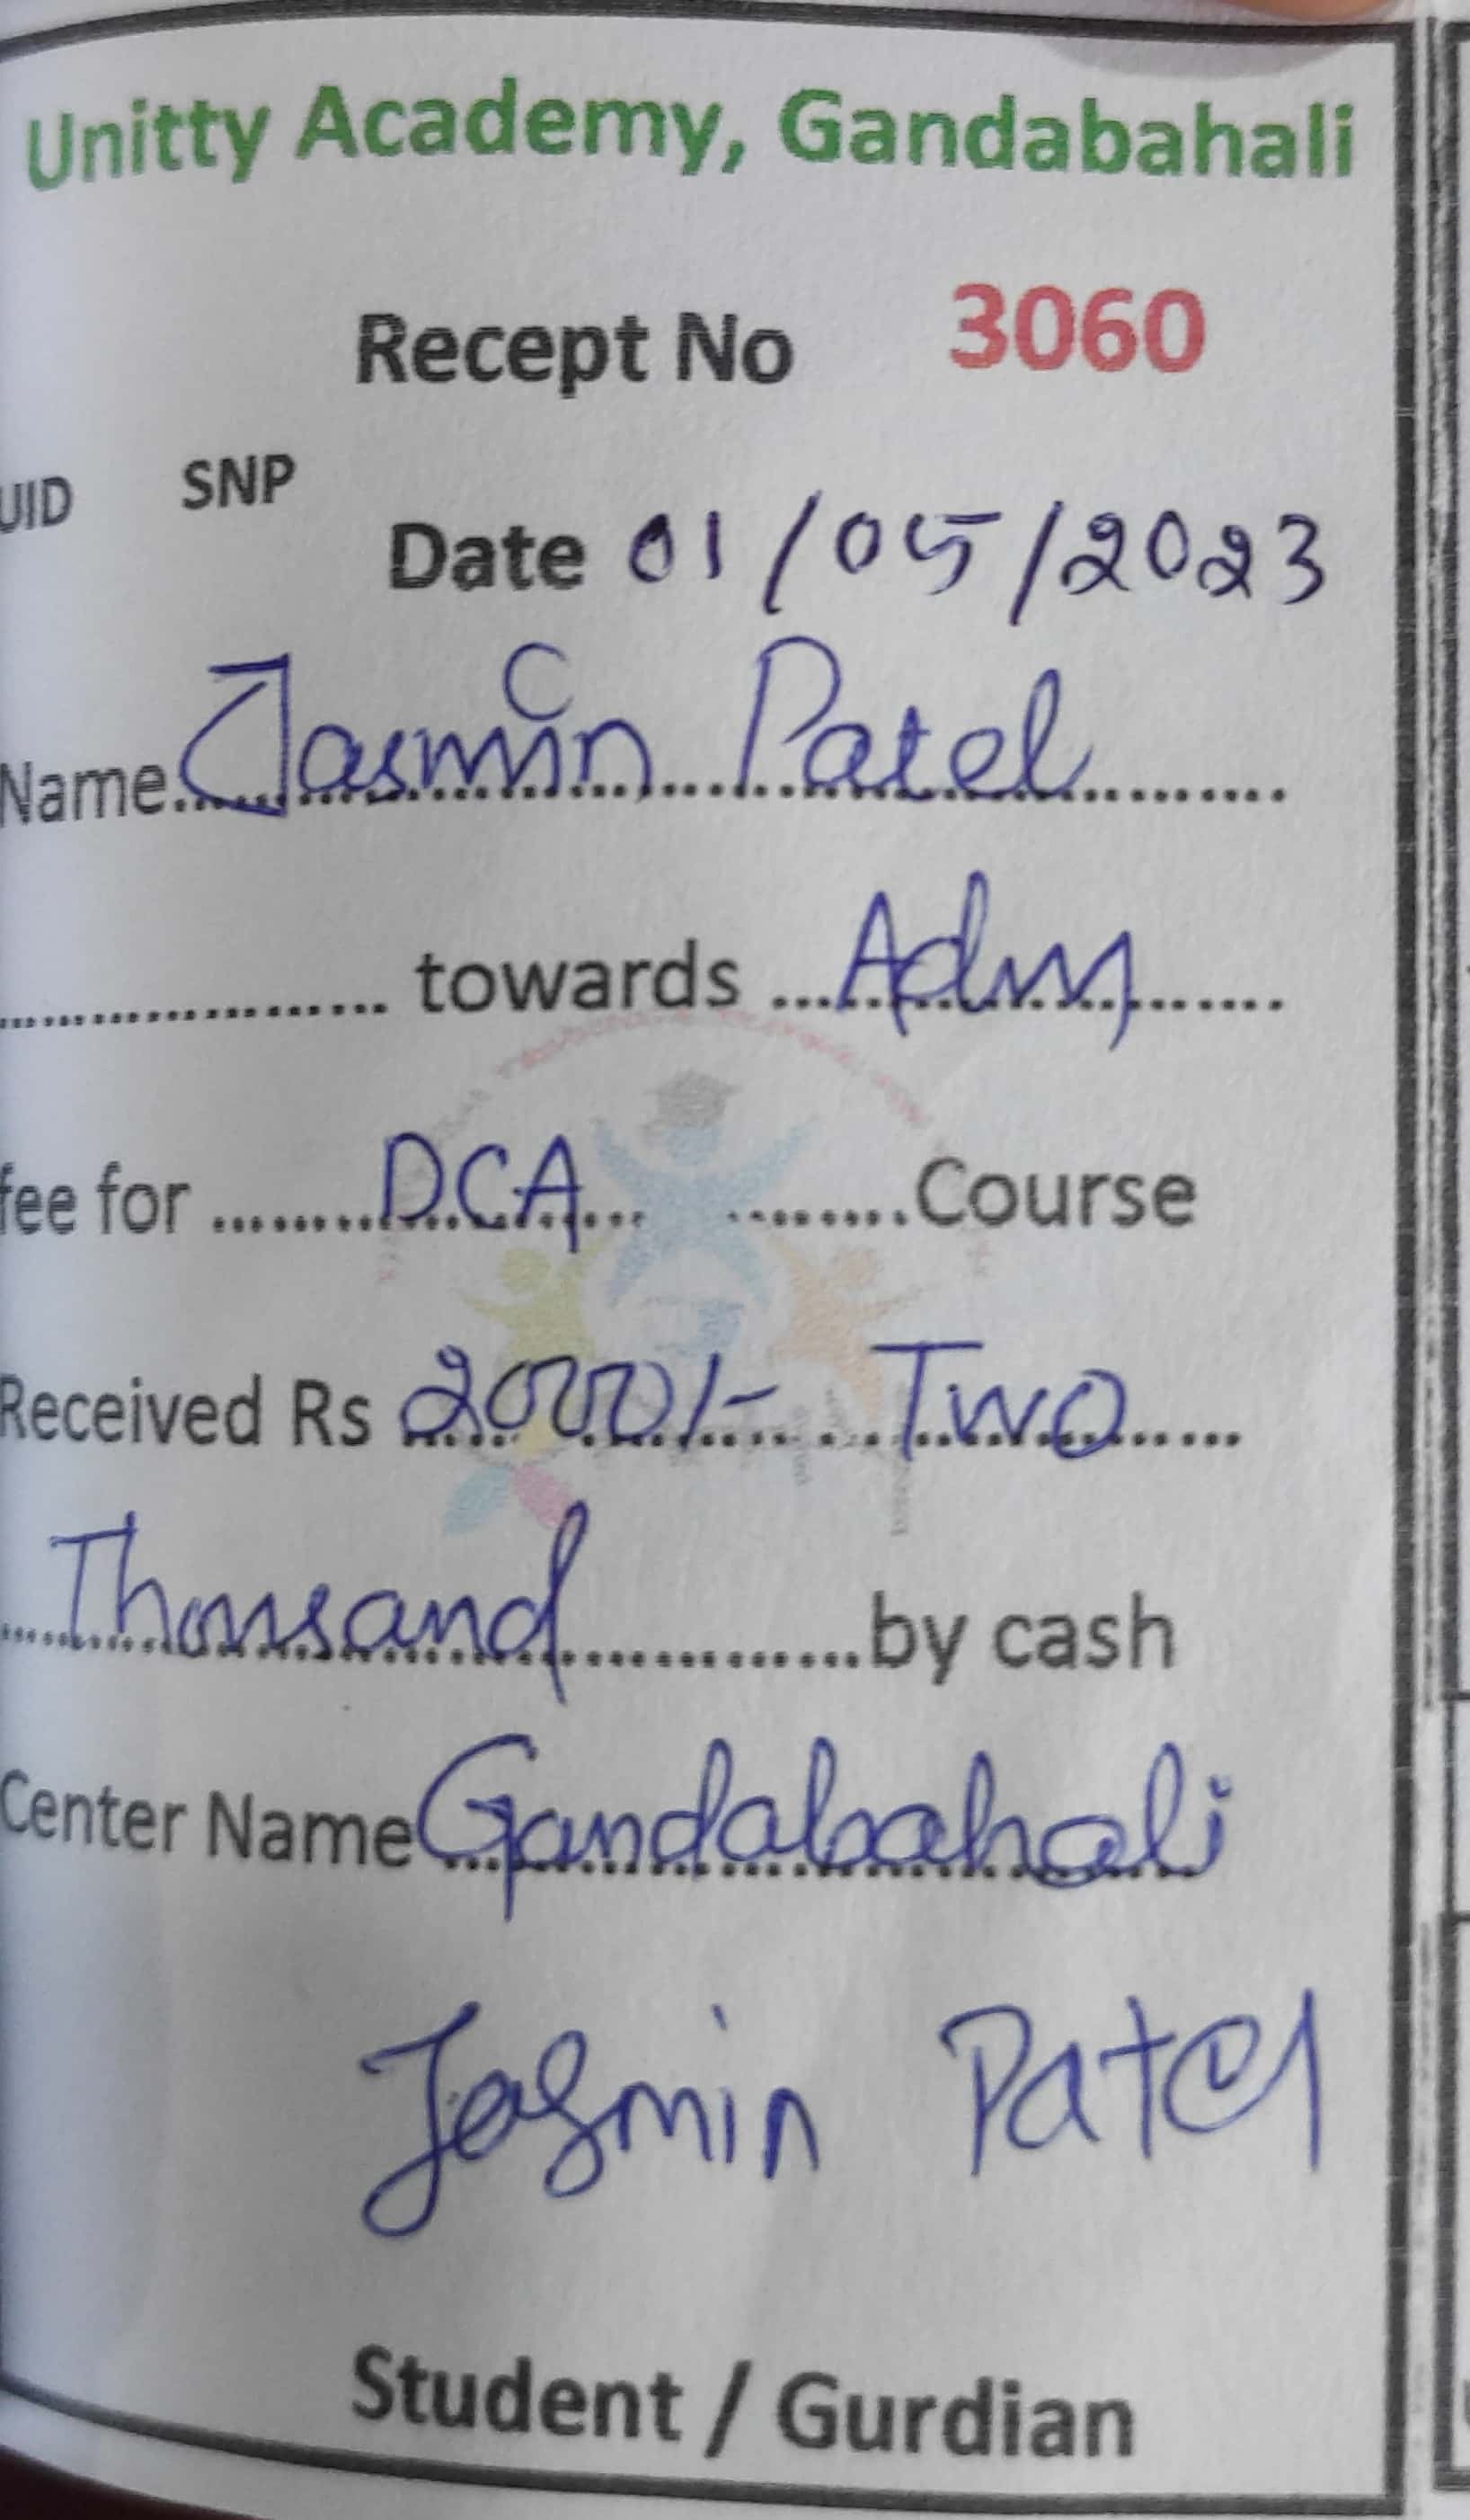 Unitty Academy, Gandabahali
Recept No 3060
UID SNP
Date 01/05/2023
Name Jasmin Patel
towards Adm
fee for DCA Course
Received Rs 2000/- Two
Thousand by cash
Center Name Gandabahali
Jasmin Patel
Student / Gurdian